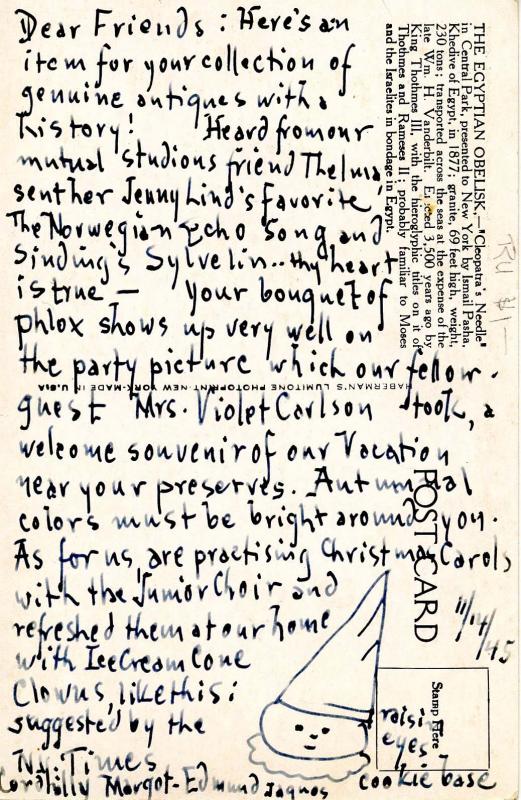 Dear Friends: Here's an
item for your collection of
genuine antiques with a
history! Heard from our
mutual studious friend Thelma,
sent her Jenny Lind's favorite
The Norwegian Echo Song and
Sinding's Sylvelin.. thy heart
is true — your bouquet of
phlox shows up very well on
the party picture which our fellow-
guest Mrs. Violet Carlson took, a
welcome souvenir of our Vacation
near your preserves. Autumnal
colors must be bright around you.
As for us, are practising Christmas Carols
with the Junior Choir and
refreshed them at our home
with Ice Cream Cone
Clowns, like this:
suggested by the
N.Y. Times
Cordially Margot-Edmund Jaques
raisin
eyes
cookie base
11/14/45
THE EGYPTIAN OBELISK.—"Cleopatra's Needle"
in Central Park, presented to New York by Ismail Pasha.
Khedive of Egypt, in 1877; granite, 69 feet high, weight,
230 tons; transported across the seas at the expense of the
late Wm. H. Vanderbilt. Erected 3,500 years ago by
King Thothmes III, with the hieroglyphic titles on it of
Thothmes and Rameses II; probably familiar to Moses
and the Israelites in bondage in Egypt.
HABERMAN'S LUMITONE PHOTOPRINT·NEW YORK·MADE IN U.S.A
POST CARD
Stamp Here
$1-